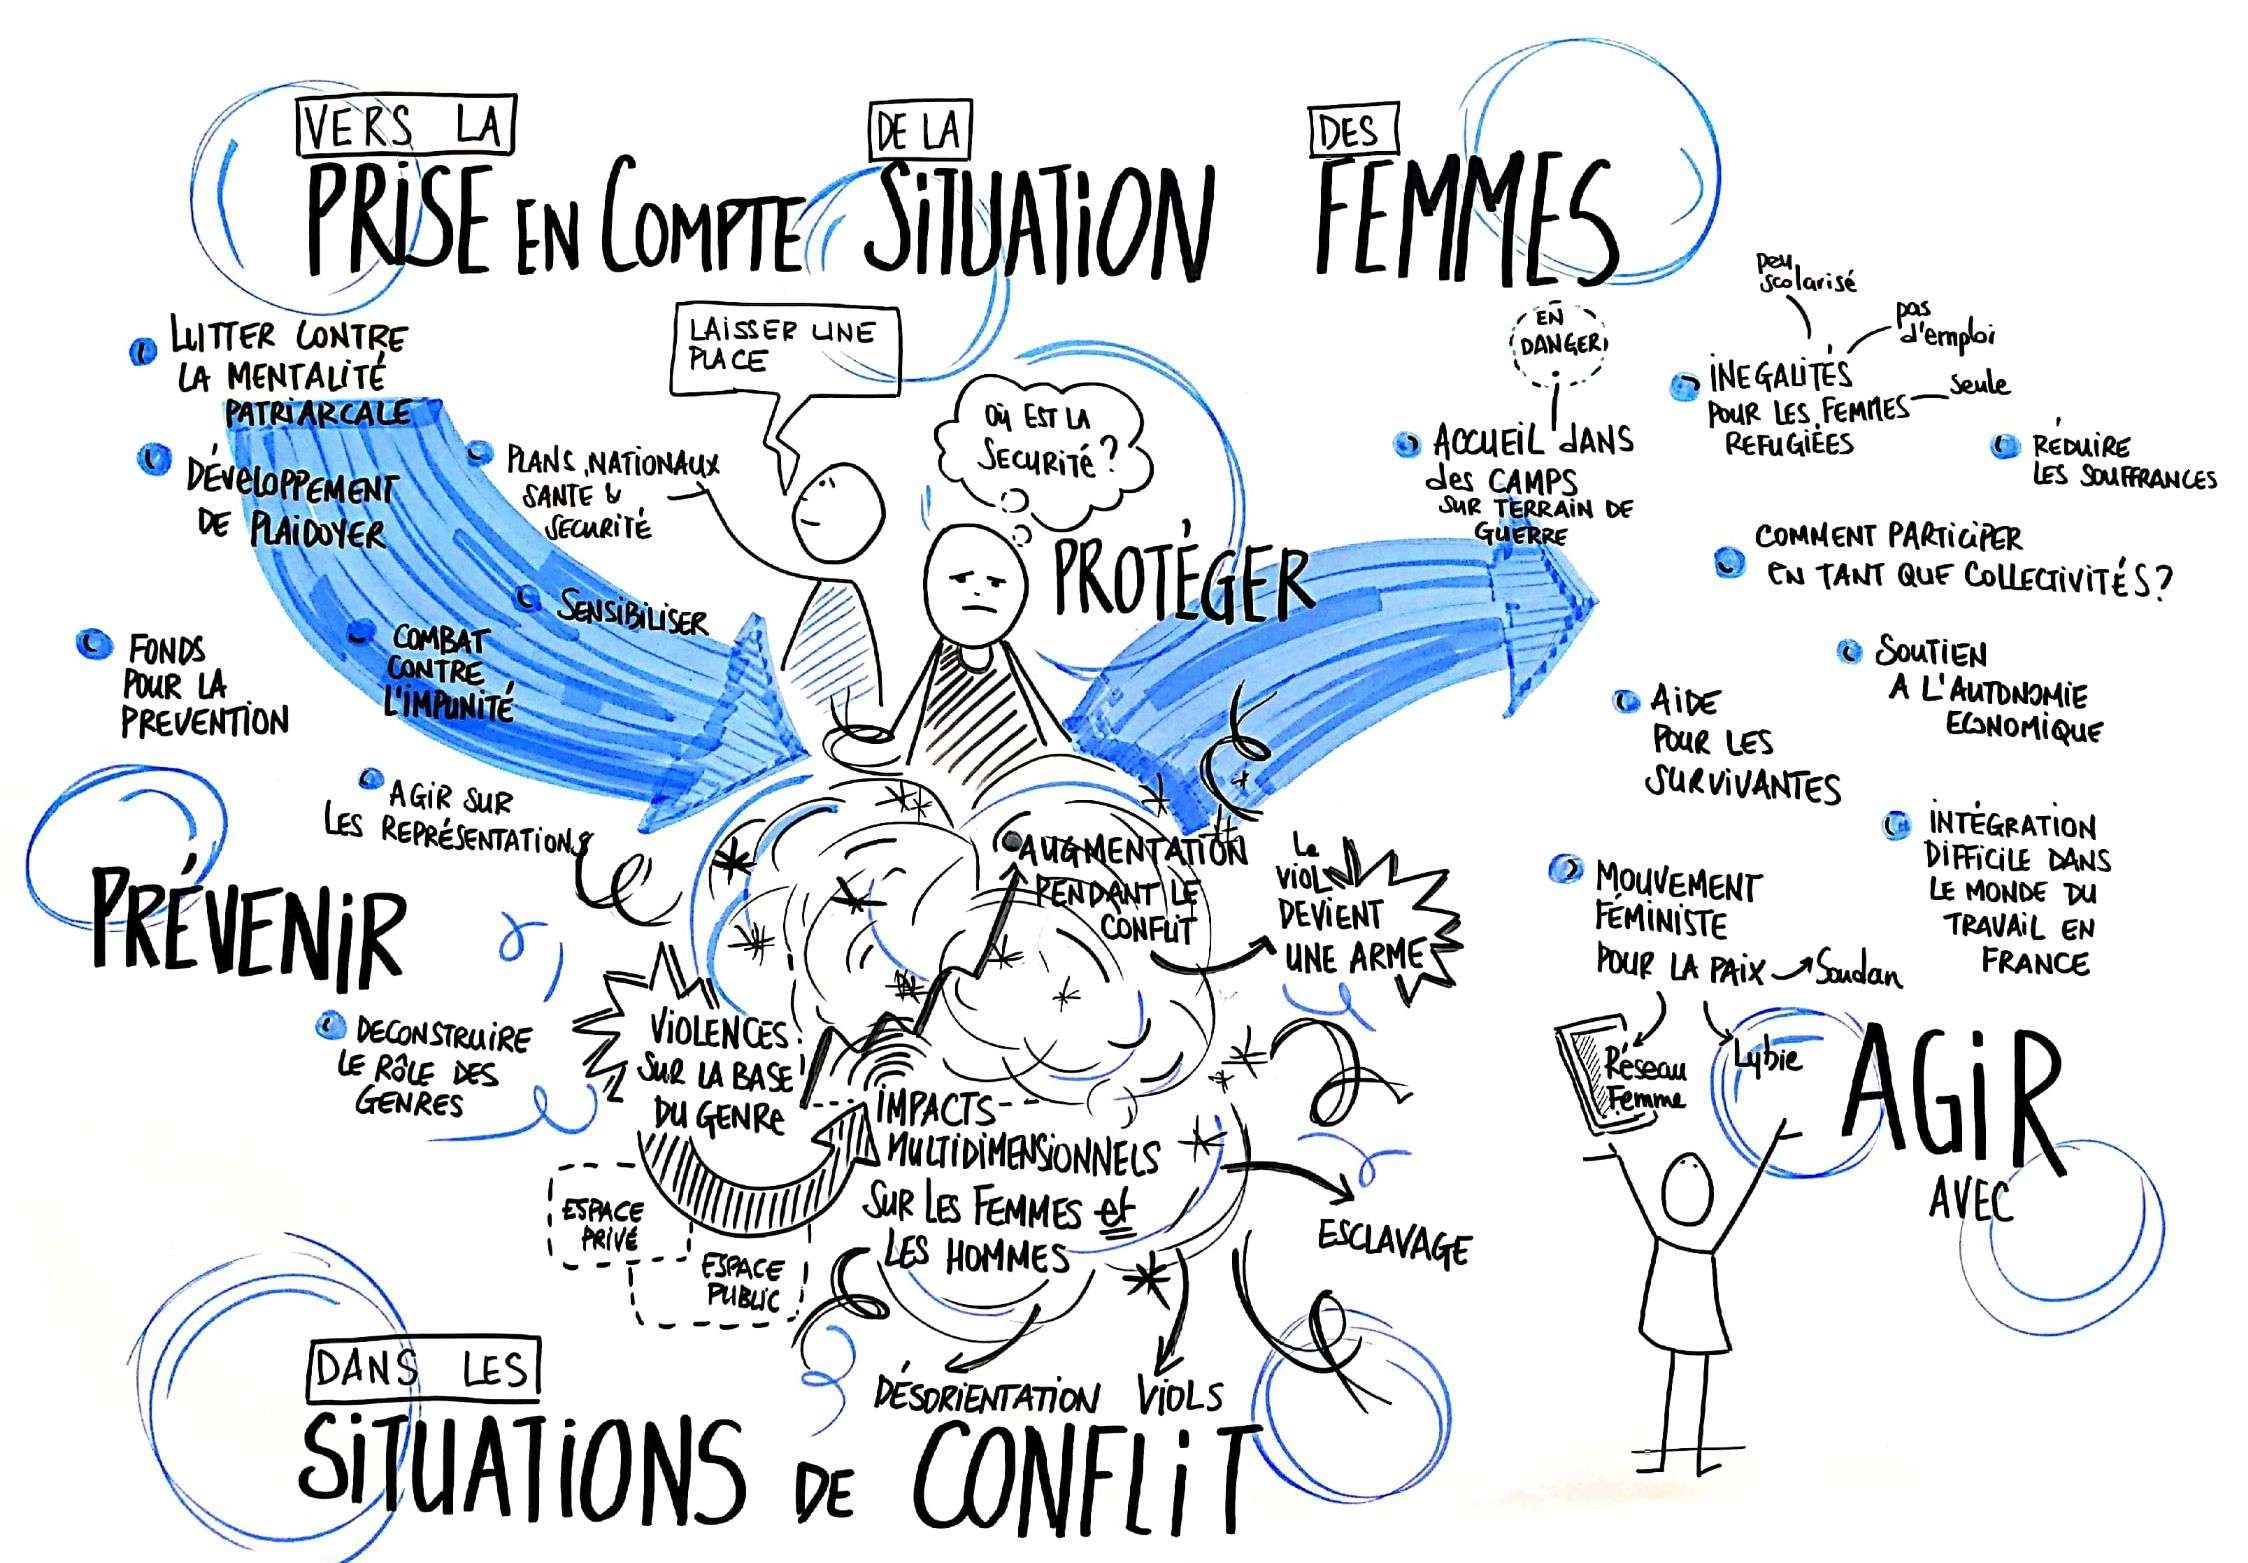 VERS LA
PRiSE EN COMPTE
DE LA
SiTUATiON
DES
FEMMES
LUTTER CONTRE
LA MENTALiTÉ
PATRiARCALE
DÉVELOPPEMENT
DE PLAiDOYER
PLANS NATiONAUX
SANTE &
SECURiTÉ
SENSiBiLiSER
COMBAT
CONTRE
L'iMPUNiTÉ
FONDS
POUR LA
PREVENTiON
AGiR SUR
LES REPRÉSENTATiONS
PRÉVENiR
DECONSTRUiRE
LE RÔLE DES
GENRES
LAiSSER UNE
PLACE
OÙ EST LA
SECURiTÉ ?
PROTÉGER
AUGMENTATiON
PENDANT LE
CONFLiT
Le
VioL
DEViENT
UNE ARME
ViOLENCES
SUR LA BASE
DU GENRe
ESPACE
PRiVÉ
ESPACE
PUBLiC
iMPACTS
MULTiDiMENSiONNELS
SUR LES FEMMES et
LES HOMMES
ESCLAVAGE
DÉSORiENTATiON
ViOLS
EN
DANGER
ACCUEiL dANS
des CAMPS
SUR TERRAiN DE
GUERRE
peu
scolarisé
pas
d'emploi
seule
iNEGALiTÉS
POUR LES FEMMES
REFUGiÉES
RÉDUiRE
LES SOUFFRANCES
COMMENT PARTiCiPER
EN TANT QUE COLLECTiViTÉS ?
SOUTiEN
A L'AUTONOMiE
ECONOMiQUE
AiDE
POUR LES
SURViVANTES
iNTÉGRATiON
DiFFiCiLE DANS
LE MONDE DU
TRAVAiL EN
FRANCE
MOUVEMENT
FÉMiNiSTE
POUR LA PAiX
Soudan
Réseau
Femme
Lybie
AGiR
AVEC
DANS LES
SiTUATiONS DE CONFLiT